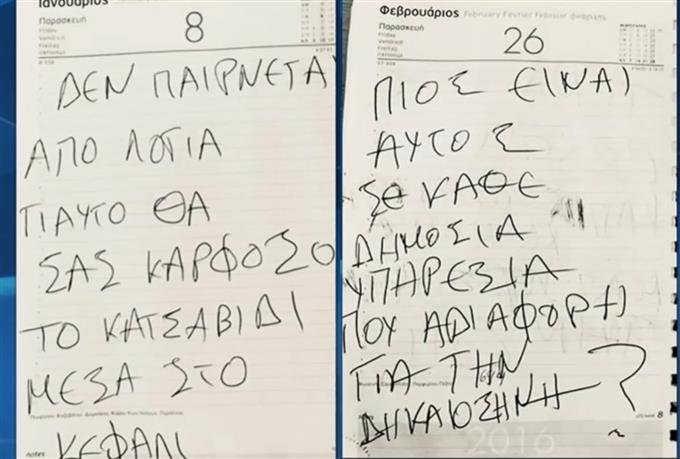 Ιανουάριος
Παρασκευή
Friday
Vendredi
Freitag
8
ΔΕΝ ΠΑΙΡΝΕΤΑ
ΑΠΟ ΛΟΓΙΑ
ΓΙΑΥΤΟ ΘΑ
ΣΑΣ ΚΑΡΦΟΣΟ
ΤΟ ΚΑΤΣΑΒΙΔΙ
ΜΕΣΑ ΣΤΟ
ΚΕΦΑΛΙ
notes
Φεβρουάριος February Février Februar
Παρασκευή
Friday
Vendredi
Freitag
26
ΠΙΟΣ ΕΙΝΑΙ
ΑΥΤΟΣ
ΣΕ ΚΑΘΕ
ΔΗΜΟΣΙΑ
ΥΠΑΡΕΣΙΑ
ΠΟΥ ΑΔΙΑΦΟΡΗ
ΓΙΑ ΤΗΝ
ΔΗΚΑΙΟΣΗΝΗ ?
2016
8